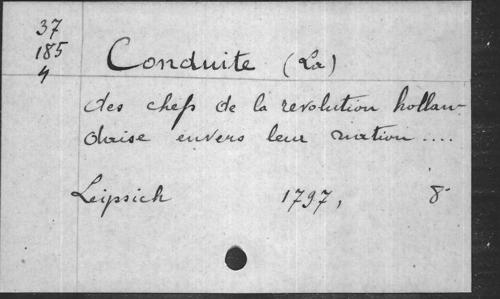 37
185
4
Conduite (La)
des chefs de la revolution hollan-
daise envers leur nation ....
Leipsich 1797, 8°